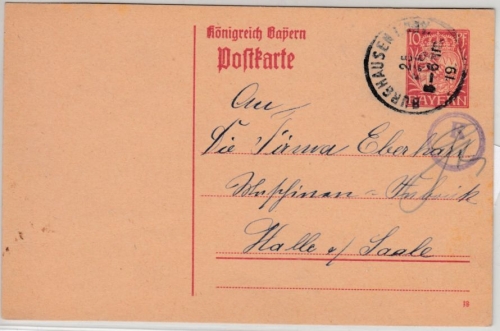 Königreich Bayern
Postkarte
10
BAYERN
BURGHAUSEN
19
An
Die Firma Eberhardt
Maschinen-Fabrik
Halle a/ Saale